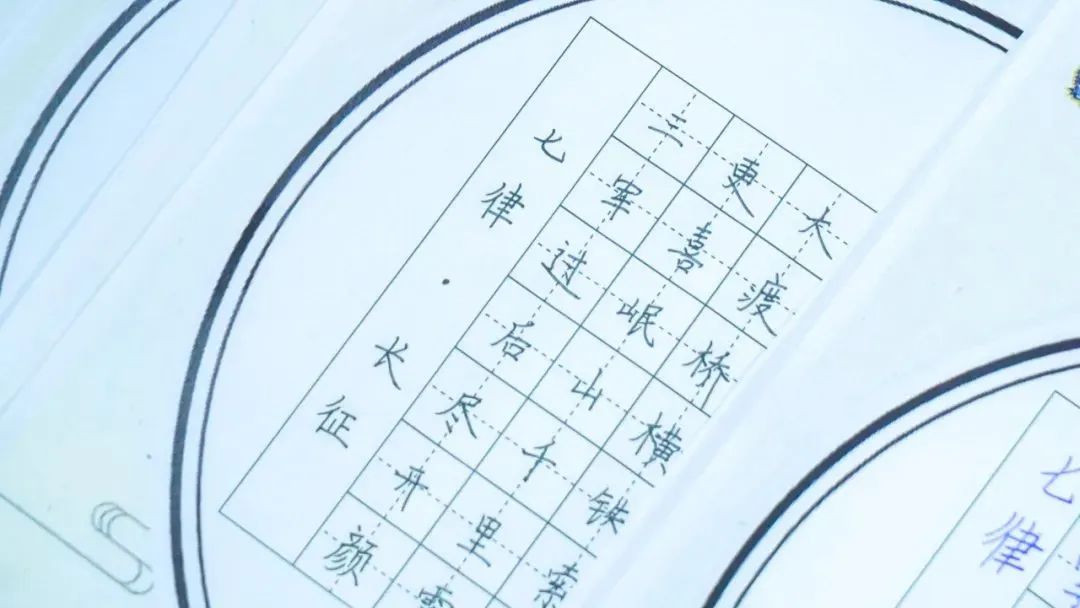 大渡桥横铁索
更喜岷山千里
三军过后尽开颜
七律·长征
七律